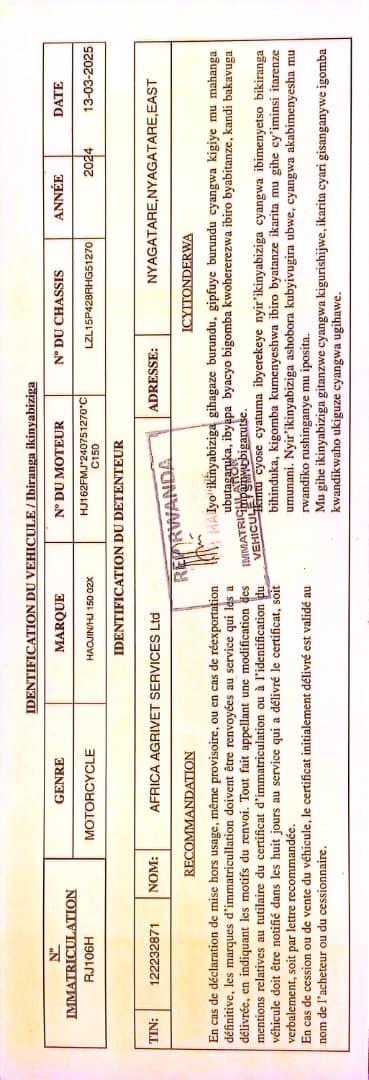 IDENTIFICATION DU VEHICULE / Ibiranga Ikinyabiziga
N° IMMATRICULATION
GENRE
MARQUE
N° DU MOTEUR
N° DU CHASSIS
ANNÉE
DATE
RJ106H
MOTORCYCLE
HAOJIN/HJ 150 02X
HJ162FMJ*240751270*C
C150
LZL15P428RHG51270
2024
13-03-2025
IDENTIFICATION DU DETENTEUR
TIN:
122232871
NOM:
AFRICA AGRIVET SERVICES Ltd
ADRESSE:
NYAGATARE,NYAGATARE,EAST
RECOMMANDATION
En cas de déclaration de mise hors usage, même provisoire, ou en cas de réexportation
définitive, les marques d'immatricullation doivent être renvoyées au service qui les a
délivrée, en indiquant les motifs du renvoi. Tout fait appellant une modification des
mentions relatives au tutilaire du certificat d'immatriculation ou à l'identification du
véhicule doit être notifié dans les huit jours au service qui a délivré le certificat, soit
verbalement, soit par lettre recommandée.
En cas de cession ou de vente du véhicule, le certificat initialement délivré est validé au
nom de l'acheteur ou du cessionnaire.
ICYITONDERWA
Iyo ikinyabiziga gihagaze burundu, gipfuye burundu cyangwa kigiye mu mahanga
ubutagaruka, ibyapa byacyo bigomba kwohererezwa ibiro byabitanze, kandi bakavuga
impamvu bigarutse.
Ikintu cyose cyatuma ibyerekeye nyir'ikinyabiziga cyangwa ibimenyetso bikiranga
bihinduka, kigomba kumenyeshwa ibiro byatanze ikarita mu gihe cy'iminsi itarenze
umunani. Nyir'ikinyabiziga ashobora kubyivugira ubwe, cyangwa akabimenyesha mu
rwandiko rushinganye mu iposita.
Mu gihe ikinyabiziga gitanzwe cyangwa kigurishijwe, ikarita cyari gisanganywe igomba
kwandikwaho ukiguze cyangwa ugihawe.
REP. RWANDA
IMMATRICULATION
VEHICULE